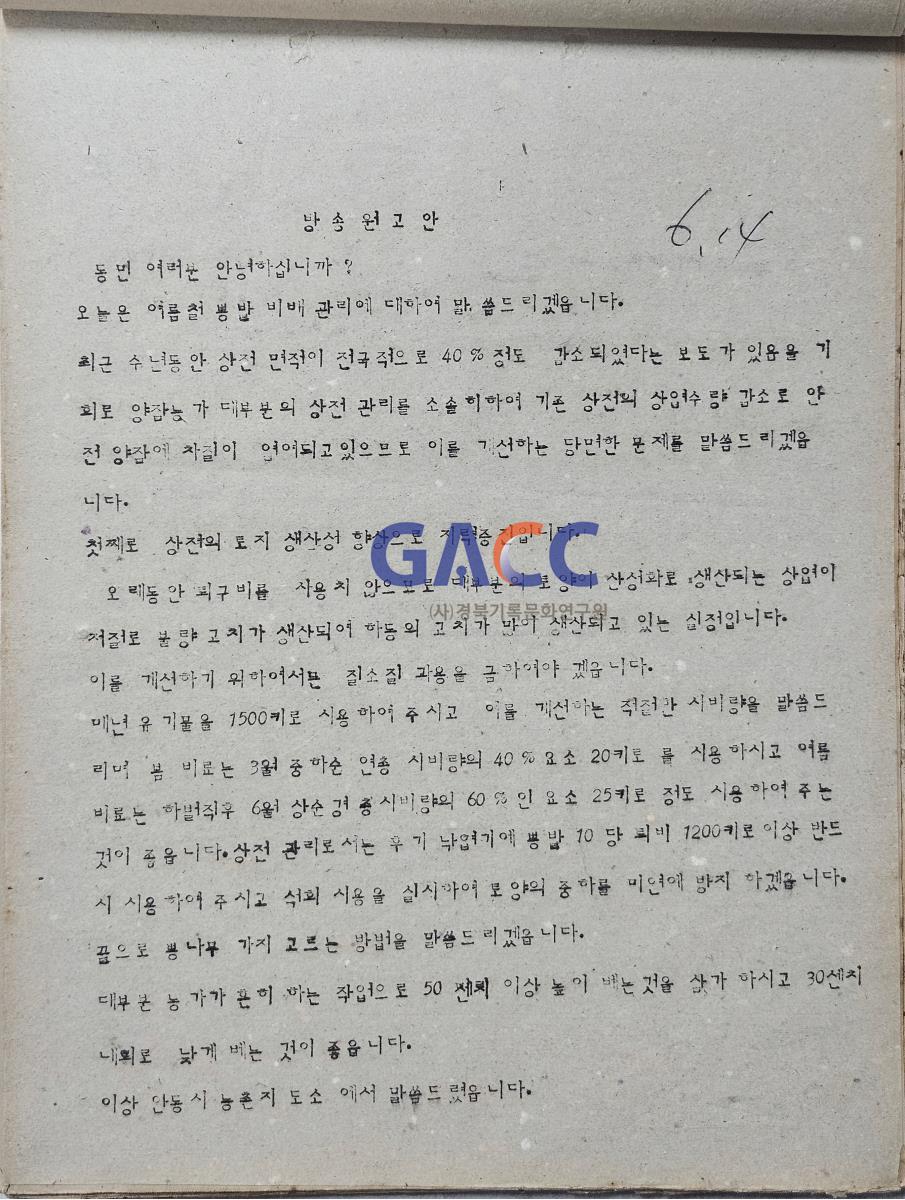 방 송 원 고 안
6.14
동민 여러분 안녕하십니까 ?
오늘은 여름철 뽕밭 비배 관리에 대하여 말 씀드리겠읍니다.
최근 수년동안 상전 면적이 전국적으로 40 % 정도 감소되었다는 보도가 있음을 기
회로 양잠농 가 대부분의 상전 관리를 소솔히하여 기존 상전의 상엽수량 감소로 안
전 양잠에 차질이 되고있으므로 이를 개선하는 당면한 문제를 말씀드리겠읍
니다.
첫째로 상전의 토지 생산성 향상으로 지력증진입니다.
오래동안 퇴구비를 사용치 않으므로 대부분의 토양이 산성화로 생산되는 상엽이
저절로 불량고치가 생산되여 하등의 고치가 많이 생산되고 있는 실정입니다.
이를 개선하기 위하여서는 질소질 과용을 금하여야 겠읍니다.
매년 유기물을 1500키로 시용하여 주시고 이를 개선하는 적절한 시비량을 말씀드
리며 봄 비료는 3월 중하순 연총 시비량의 40 % 요소 20키로 를 시용하시고 여름
비료는 하벌직후 6월 상순경 총시비량의 60 % 인 요소 25키로 정도 시용하여 주는
것이 좋읍니다. 상전 관리로서는 후기 낙엽기에 뽕밭 10 당 퇴비 1200키로이상 반드
시 시용하여 주시고 석회 시용을 실시하여 토양의 중화를 미연에 방지 하겠읍니다.
끝으로 뽕나무 가지 고르는 방법을 말씀드리겠읍니다.
대부분 농가가 흔히 하는 작업으로 50 센치 이상 높이 베는것을 삼가 하시고 30센치
내외로 낮게 베는 것이 좋읍니다.
이상 안동시농촌지도소 에서 말씀드렸읍니다.
GACC
(사)경북기록문화연구원